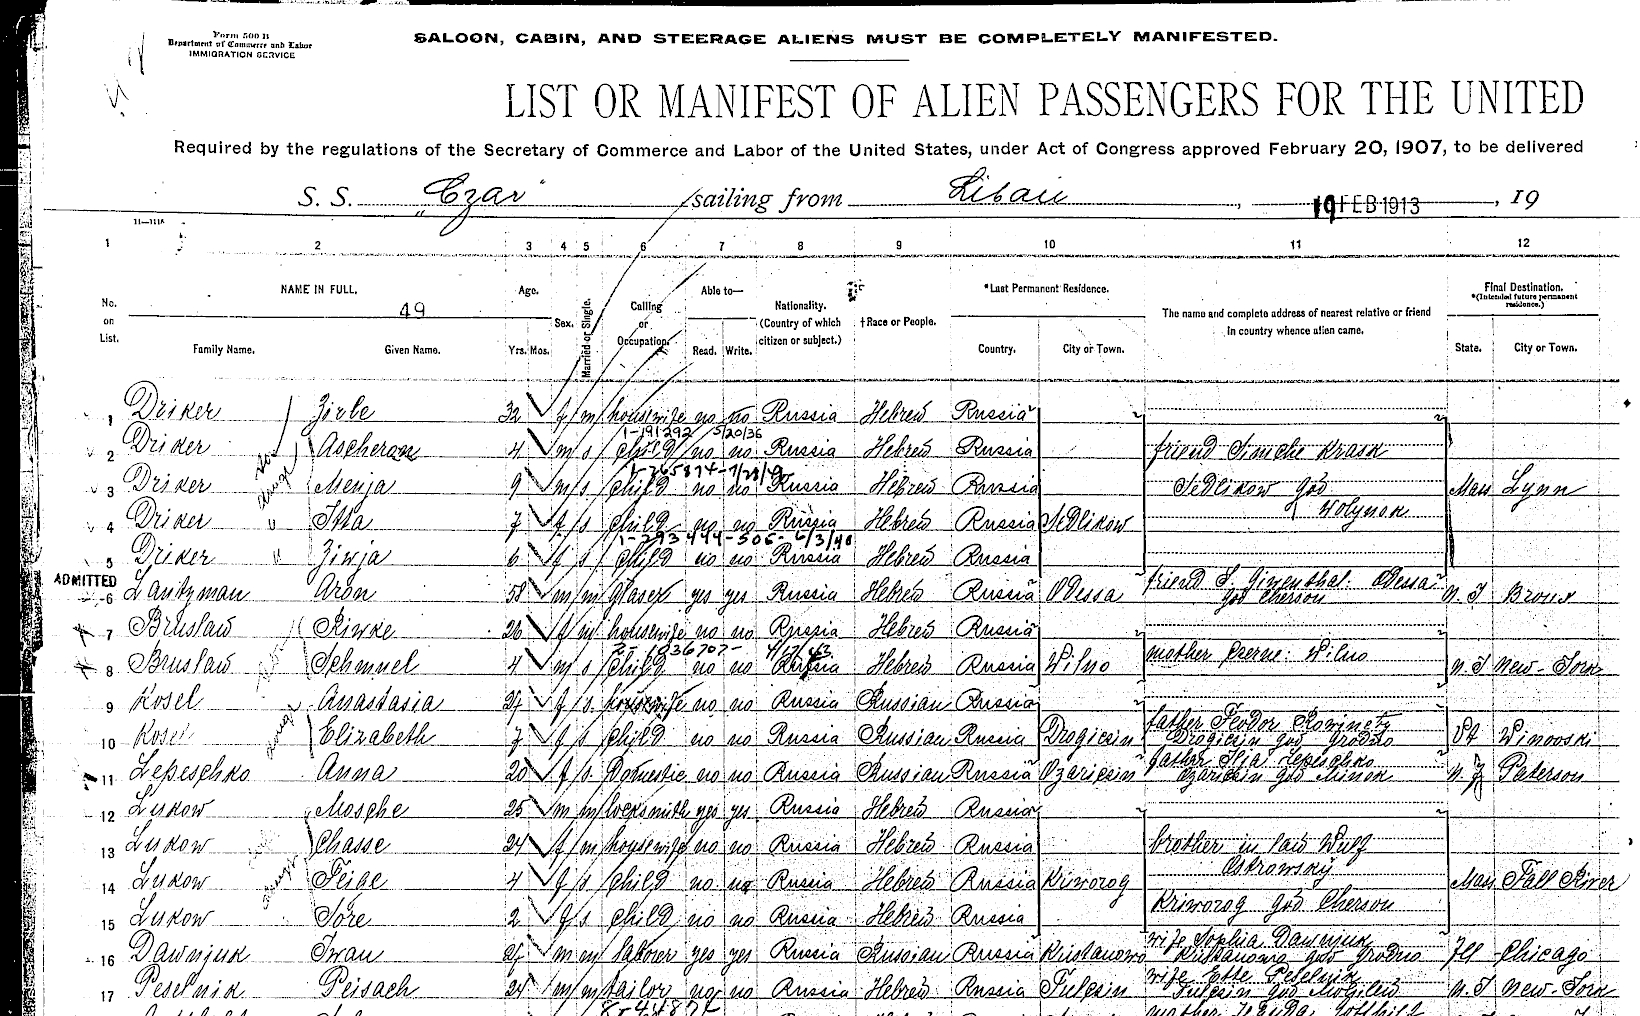 Form 500 B
Department of Commerce and Labor
IMMIGRATION SERVICE
SALOON, CABIN, AND STEERAGE ALIENS MUST BE COMPLETELY MANIFESTED.
LIST OR MANIFEST OF ALIEN PASSENGERS FOR THE UNITED
Required by the regulations of the Secretary of Commerce and Labor of the United States, under Act of Congress approved February 20, 1907, to be delivered
S. S. "Czar" sailing from Libau, 19 FEB 1913, 19
1 2 3 4 5 6 7 8 9 10 11 12
No. on List. NAME IN FULL. Age. Sex. Married or Single. Calling or Occupation. Able to— Nationality. (Country of which citizen or subject.) †Race or People. *Last Permanent Residence. The name and complete address of nearest relative or friend in country whence alien came. Final Destination. *(Intended future permanent residence.)
49
Family Name. Given Name. Yrs. Mos. Read. Write. Country. City or Town. State. City or Town.
1 Driker Zirle 32 f m housewife no no Russia Hebrew Russia
1-191292 5/20/36
2 Driker Ascheron 4 m s child no no Russia Hebrew Russia friend Simche Krask
3 Driker Menja 9 m s child no no Russia Hebrew Russia Sedlikow god Mass Lynn
4 Driker Itta 7 f s child no no Russia Hebrew Russia Sedlikow Wolynsk
5 Driker Ziwja 6 f s child no no Russia Hebrew Russia
ADMITTED
6 Lantzman Aron 58 m m glaser yes yes Russia Hebrew Russia Odessa friend Odessa god Cherson N. Y Bronx
7 Bruslaw Riwke 26 f m housewife no no Russia Hebrew Russia
8 Bruslaw Schmuel 4 m s child no no Russia Hebrew Russia Wilno mother Wilno N. Y New-York
9 Kosel Anastasia 24 f s housewife no no Russia Russian Russia
10 Kosel Elizabeth 7 f s child no no Russia Russian Russia Drogicsin father Feodor Drogicsin god Grodno Vt Winooski
11 Lepeschko Anna 20 f s Domestic no no Russia Russian Russia Ozaricsin father Ilja Lepeschko Ozaricsin god Minsk N. J Paterson
12 Lukow Mosche 25 m m locksmith yes yes Russia Hebrew Russia
13 Lukow Chasse 24 f m housewife no no Russia Hebrew Russia brother in law Wulf
14 Lukow Feige 4 f s child no no Russia Hebrew Russia Kriworog Ostrowsky Mass Fall River
15 Lukow Sore 2 f s child no no Russia Hebrew Russia Kriworog god Cherson
16 Dawnjuk Iwan 24 m m laborer yes yes Russia Russian Russia wife Sophia Dawnjuk god Grodno Ill Chicago
17 Peselnik Peisach 24 m m tailor no no Russia Hebrew Russia Tulesin wife Ette Peselnik Tulesin god Mogilew N. Y New-York